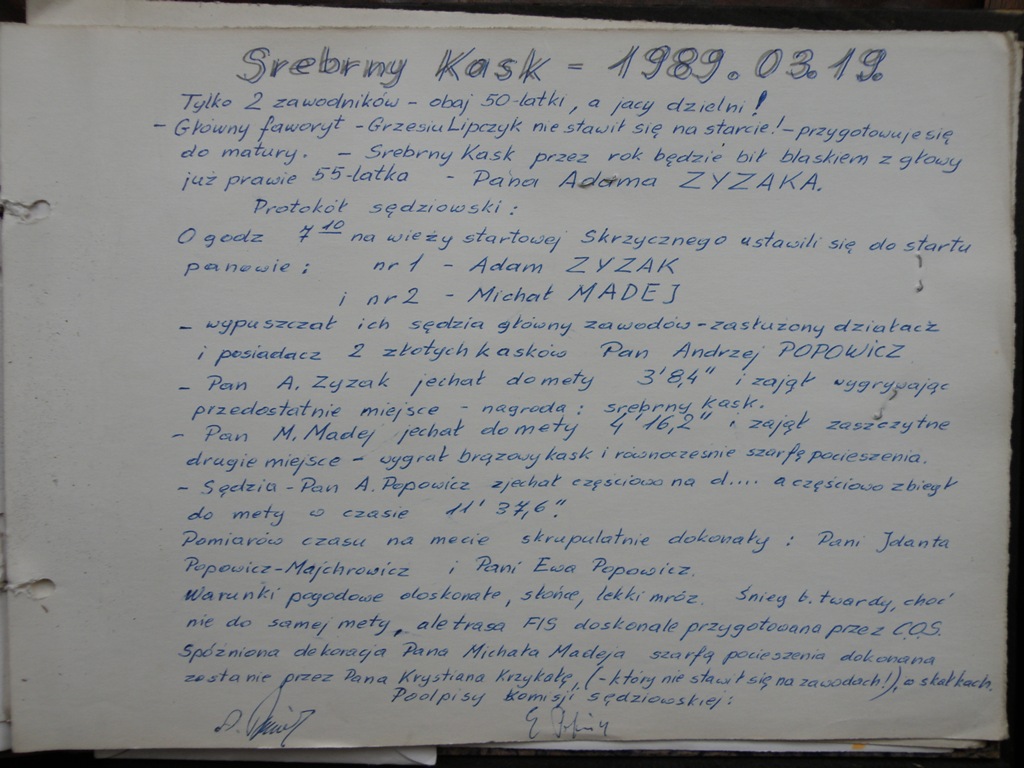 Srebrny Kask = 1989.03.19.
Tylko 2 zawodników - obaj 50-latki, a jacy dzielni!
- Główny faworyt - Grzesiu Lipczyk nie stawił się na starcie! - przygotowuje się
do matury. - Srebrny Kask przez rok będzie bił blaskiem z głowy
już prawie 55-latka - Pana Adama ZYZAKA.
Protokół sędziowski:
O godz 7 10 na wieży startowej Skrzycznego ustawili się do startu
panowie: nr 1 - Adam ZYZAK
i nr 2 - Michał MADEJ
- wypuszczał ich sędzia główny zawodów - zasłużony działacz
i posiadacz 2 złotych kasków Pan Andrzej POPOWICZ
- Pan A. Zyzak jechał do mety 3'8,4" i zajął wygrywając
przedostatnie miejsce - nagroda: srebrny kask.
- Pan M. Madej jechał do mety 4'16,2" i zajął zaszczytne
drugie miejsce - wygrał brązowy kask i równocześnie szarfę pocieszenia.
- Sędzia - Pan A. Popowicz zjechał częściowo na d.... a częściowo zbiegł
do mety w czasie 11'37,6".
Pomiarów czasu na mecie skrupulatnie dokonały: Pani Jolanta
Popowicz-Majchrowicz i Pani Ewa Popowicz.
Warunki pogodowe doskonałe, słońce, lekki mróz. Śnieg b. twardy, choć
nie do samej mety, ale trasa FIS doskonale przygotowana przez C.O.S.
Spóźniona dekoracja Pana Michała Madeja szarfą pocieszenia dokonana
zostanie przez Pana Krystiana Krzykałę, (- który nie stawił się na zawodach!), w skałkach.
Podpisy komisji sędziowskiej: